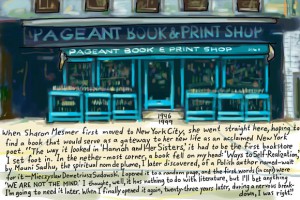 PAGEANT BOOK & PRINT SHOP
PAGEANT BOOK & PRINT SHOP
1946
1999
When Sharon Mesmer first moved to New York City, she went straight here, hoping to
find a book that would serve as a gateway to her new life as an acclaimed New York
poet. "The way it looked in 'Hannah and Her Sisters', it had to be the first bookstore
I set foot in. In the nether-most corner, a book fell on my hand: 'Ways to Self-Realization,'
by Mouni Sadhu, the spiritual nom de plume, I later discovered, of a Polish author named-wait
for it-Mieczyslaw Demetriusz Sudowski. I opened it to a random page, and the first words (in caps) were
'WE ARE NOT THE MIND.' I thought, well, it has nothing to do with literature, but I'll fig anything
I'm going to need it later. When I finally opened it again, twenty-three years later, during a nervous break-
down, I was right!"